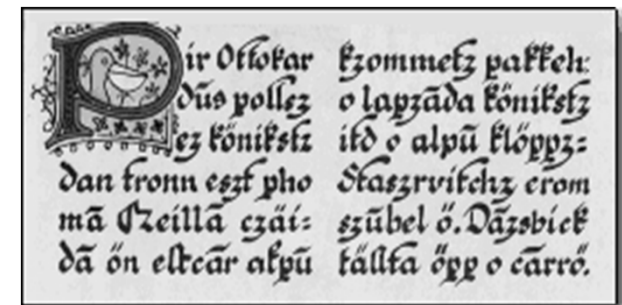 Pir Ottokar
dūs pollsz
ez könikstz
dan tronn eszt pho
mā Czeillā czäi=
dā ön eltcār alpū
kzommetz pakkeh:
o lapzāda könikstz
itd o alpū klöppz=
Staszrvitchz erom
szūbel ö. Dāzsbick
fällta öpp o cārrö.